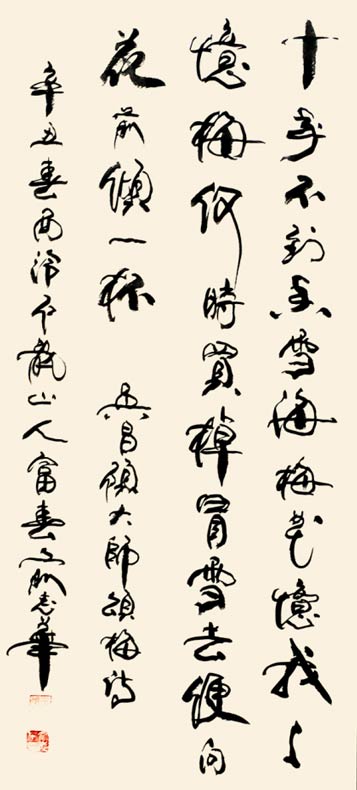 十年不到香雪海梅花憶我々
憶梅何時買棹冒雪去便向
花前傾一杯 吳昌碩大師頌梅詩
辛丑春西泠龍山人富春志華